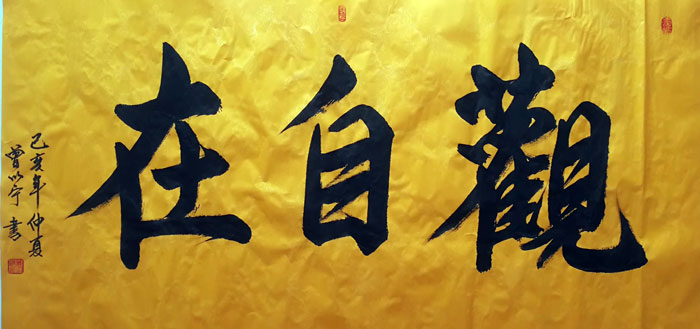 觀自在
己亥年仲夏
曾以宁書